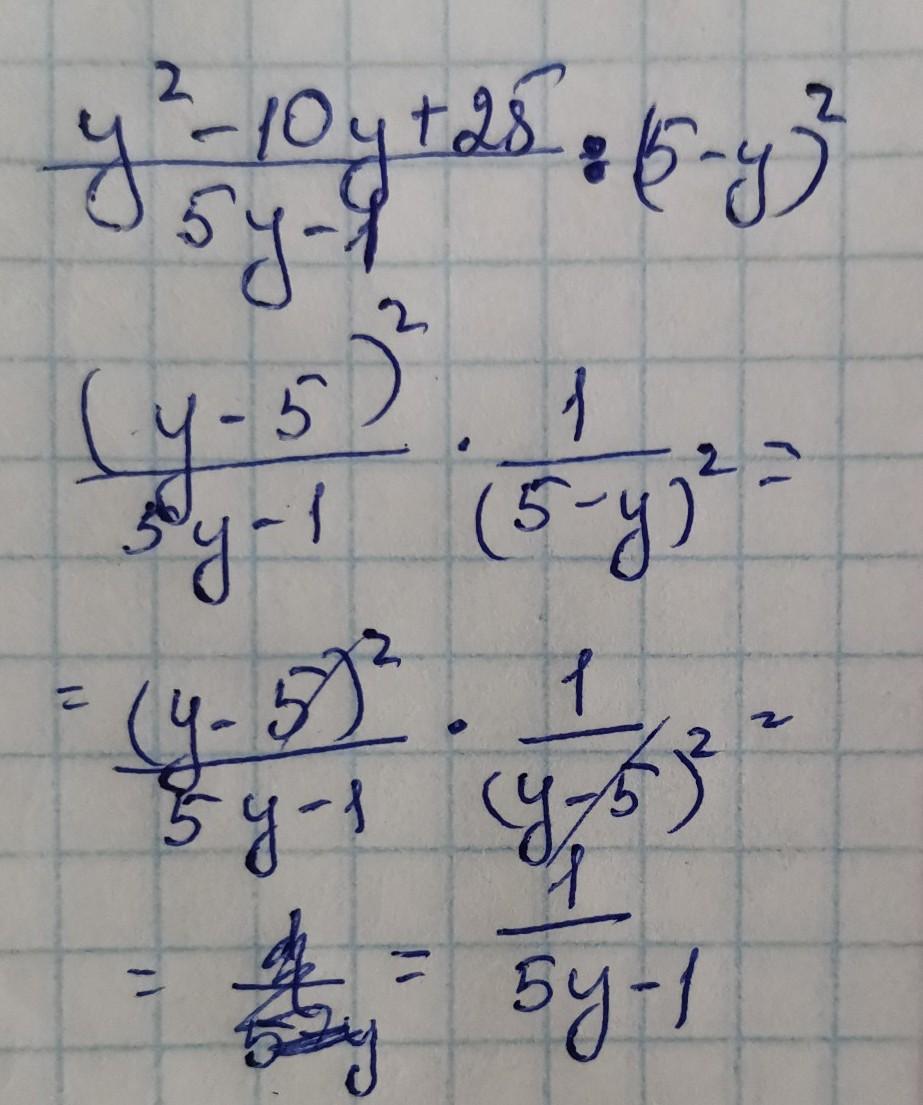 y² - 10y + 25 / 5y - 1 : (5 - y)²
(y - 5)² / 5y - 1 · 1 / (5 - y)² =
= (y - 5)² / 5y - 1 · 1 / (y - 5)² =
= = 1 / 5y - 1